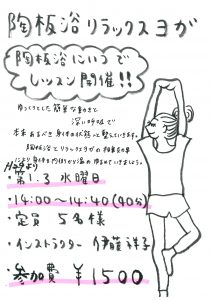 陶板浴リラックスヨガ
陶板浴にいつで
レッスン開催!!
ゆっくりとした簡単な動きと
深い呼吸で
本来あるべき身体の状態へと整えていきます。
陶板浴とリラックスヨガの相乗効果
により身体を内側から温めゆるめていきましょう。
より
第1.3 水曜日
・14:00〜14:40(40分)
・定員 5名様
・インストラクター 伊藤祥子
・参加費 ¥1500